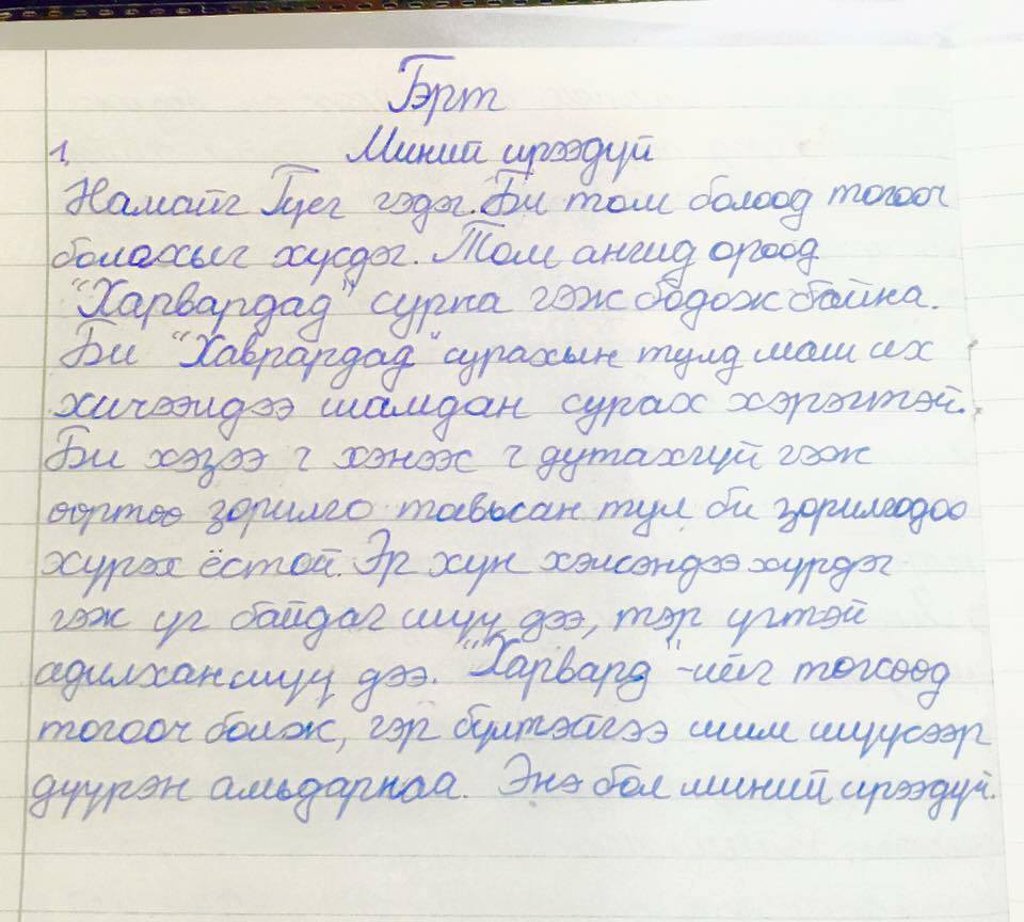 Бэрт
1, Миний ирээдүй
Намайг Гүег гэдэг. Би том болоод тогооч
болохыг хүсдэг. Том ангид ороод
"Харвардад" сурна гэж бодож байна.
Би "Хаврардад" сурахын тулд маш их
хичээндээ шамдан сурах хэрэгтэй.
Би хэзээ ч хэнээс ч дутахгүй гэж
өөртөө зорилго тавьсан тул би зорилгодоо
хүрэх ёстой. Эр хүн хэлсэндээ хүрдэг
гэж үг байдаг шүү дээ, тэр үгтэй
адилхан шүү дээ. "Харвард"-ийг төгсөөд
тогооч болж, гэр бүлтэйгээ шим шүүсээр
дүүрэн амьдарнаа. Энэ бол миний ирээдүй.